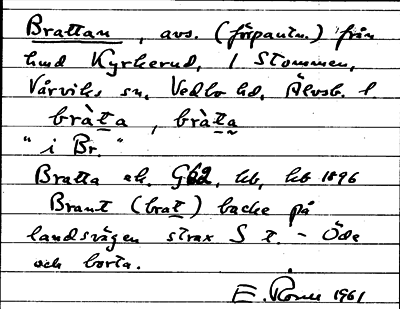 Brattan, avs. (förpantn.) från
hmd Kyrkerud, 1 Stommen,
Vårviks sn, Vedbo hd, Älvsb. l
bràta, bràta
"i Br."
Bratta ek. Gb2, kb, kb 1896
Brant (brat) backe på
landsvägen strax S t. - Öde
och borta.
E. 1961